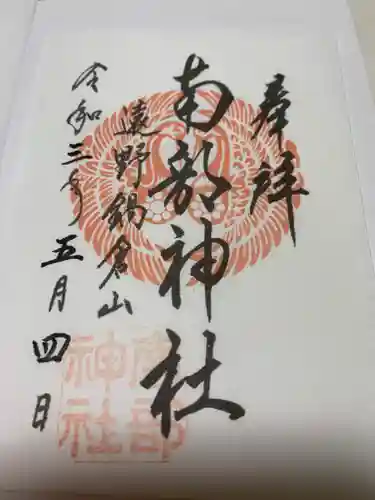 奉拝
南部神社
遠野鍋倉山
令和三年
五月四日
南部
神社